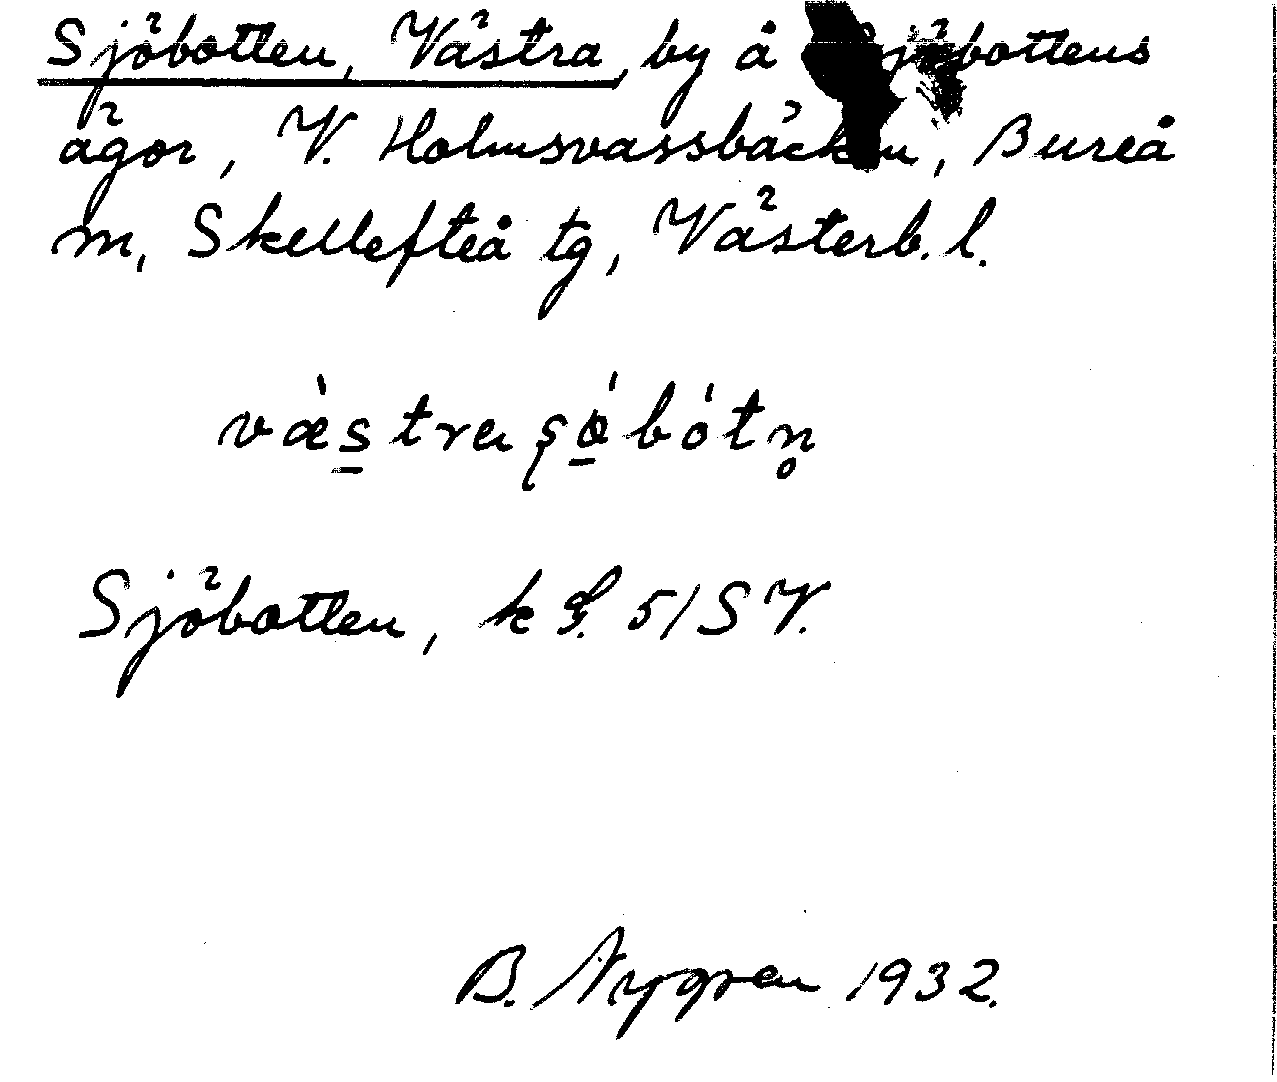 Sjöbotten, Västra, by å Sjöbottens
ägor, V. Holmsvassbäcken, Bureå
m, Skellefteå tg, Västerb. l.
Sjöbotten, k 51/SV.
B. Nygren 1932.